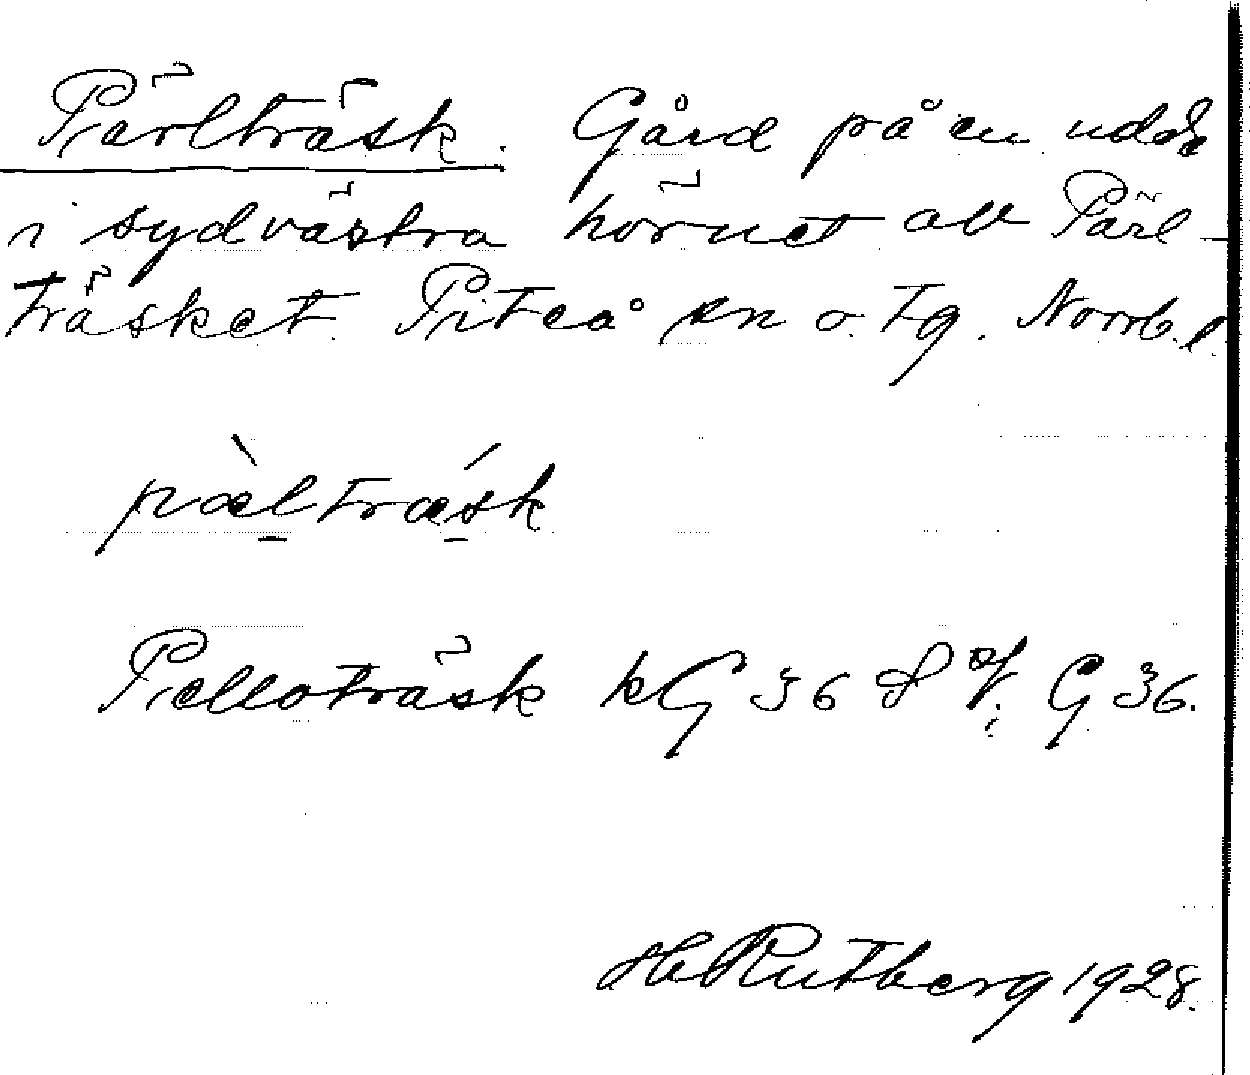 Pärlträsk. Gård på en udde
i sydvästra hörnet av Pärl-
träsket. Piteå sn o. tg. Norrb. l.
pæ̀ltrǽsk
Pelloträsk kG 36 G 36.
H Rutberg 1928.